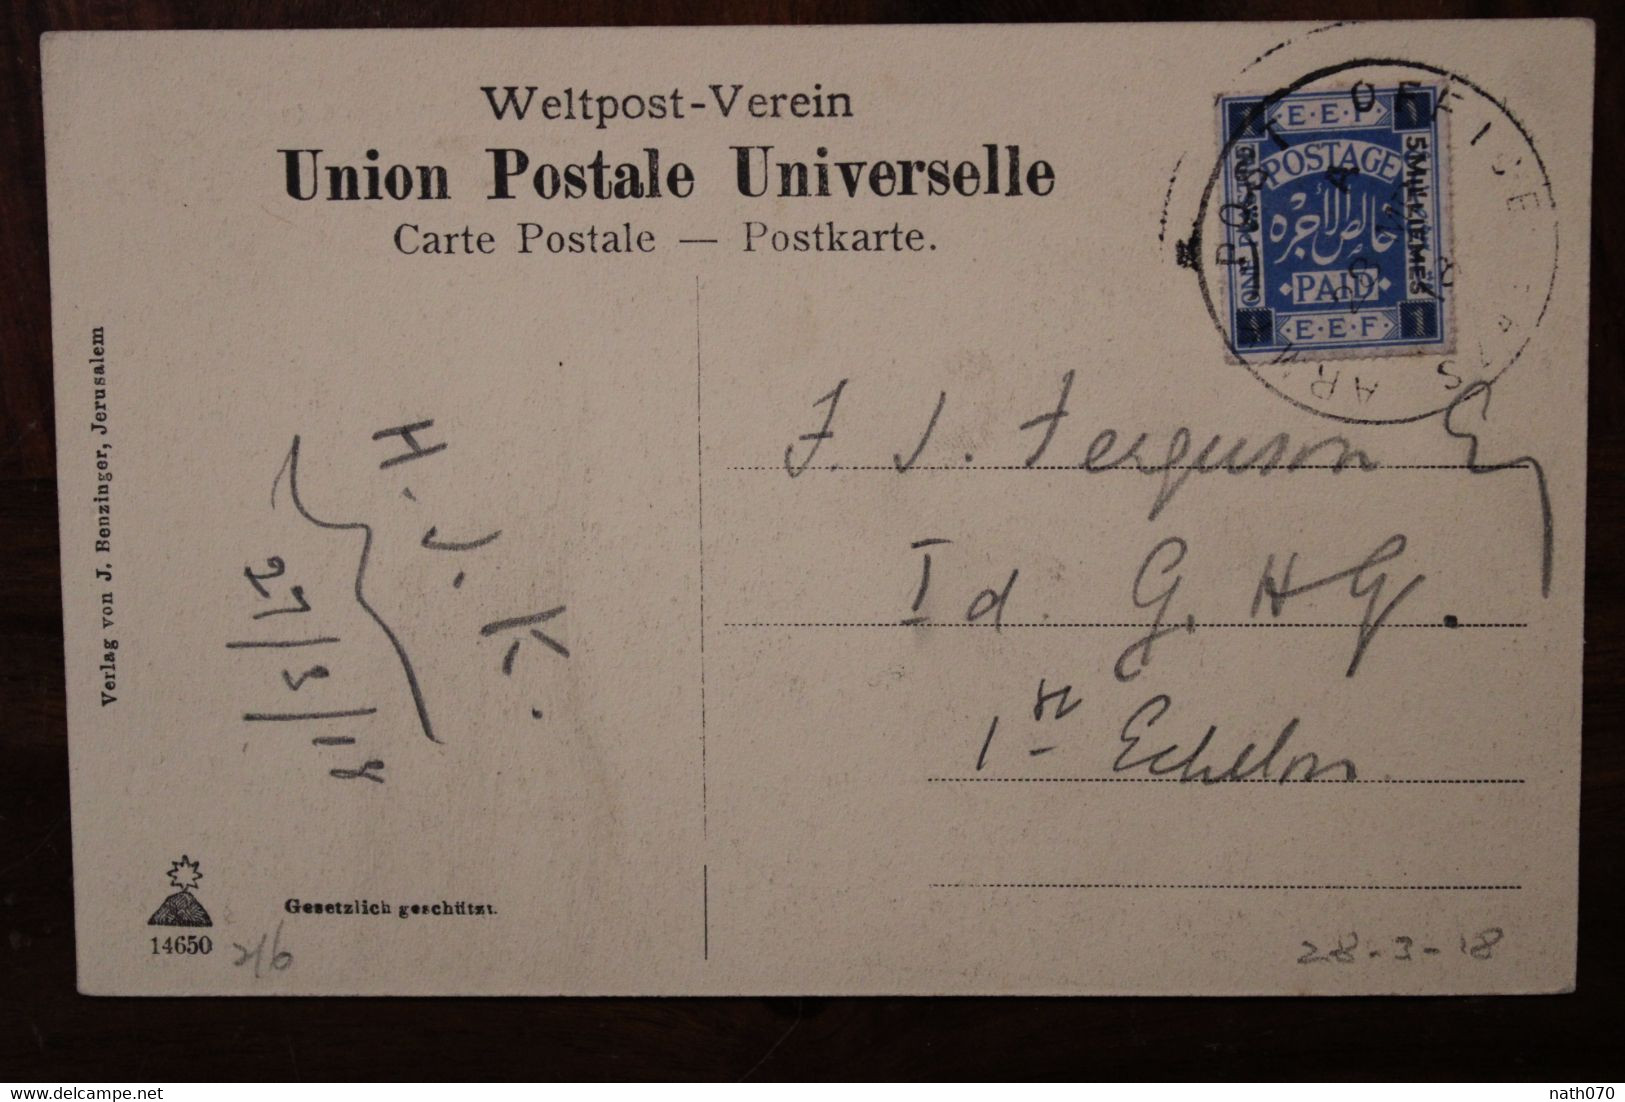 Weltpost-Verein
Union Postale Universelle
Carte Postale — Postkarte.
Verlag von J. Benzinger, Jerusalem
H. J. K.
27/3/18
Gesetzlich geschützt.
14650
2/6
E.E.F.
POSTAGE
خالص الاجره
PAID
E.E.F.
5 MILLIEMES
1
1
ARMY POST OFFICE
A
28
18
F. J. Ferguson Esq
Id. G. H.Q.
1st Echelon
28-3-18
nath070